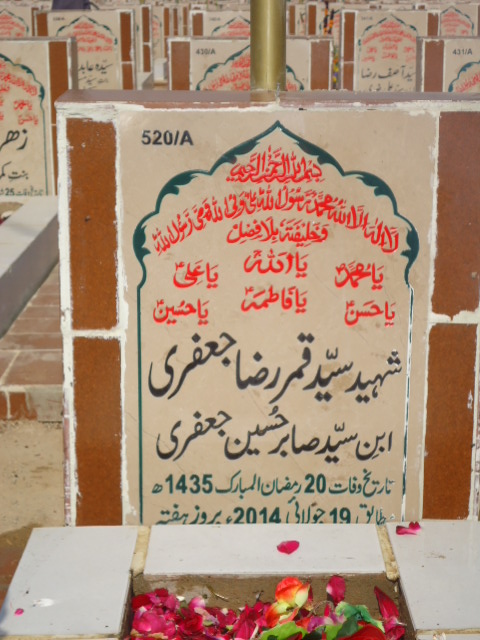 520/A
بسم اللہ الرحمن الرحیم
لا الہ الا اللہ محمد رسول اللہ علی ولی اللہ وصی رسول اللہ
وخلیفتہ بلا فصل
یا اللہ
یا محمدؐ یا علیؑ
یا حسنؑ یا فاطمہؑ یا حسینؑ
شہید سیّد قمر رضا جعفری
ابن سیّد صابر حُسین جعفری
تاریخ وفات 20 رمضان المبارک 1435ھ
مطابق 19 جولائی 2014ء بروز ہفتہ
430/A
431/A
سیدہ عابد
سید آصف رضا
زھر